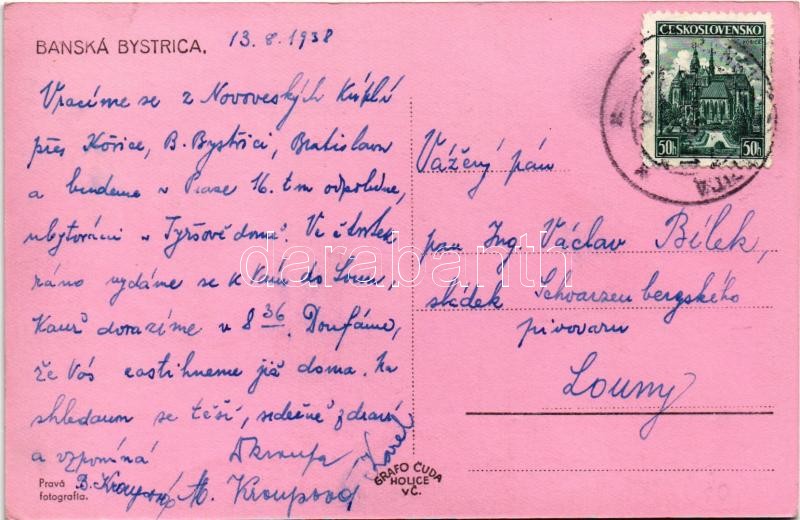 BANSKÁ BYSTRICA, 13. 8. 1938
Vracíme se z Novoveských Kúpelů
přes Košice, B. Bystřici, Bratislavu
a budeme v Praze 16. t m odpoledne,
ubytováni v "Tyršově domě". Ve čtvrtek
ráno vydáme se k Vám do Loun,
kamž dorazíme v 8 36. Doufáme,
že Vás zastihneme již doma. Na
shledanou se těší, srdečně zdraví
a vzpomíná
Karel
B. Kroupová M. Kroupová
Pravá
fotografia.
GRAFO ČUDA
HOLICE
V Č.
ČESKOSLOVENSKO
KOŠICE
50h 50h
Vážený pán
pan Ing. Václav Bílek,
sládek Schwarzenbergského
pivovaru
Louny
darabanth